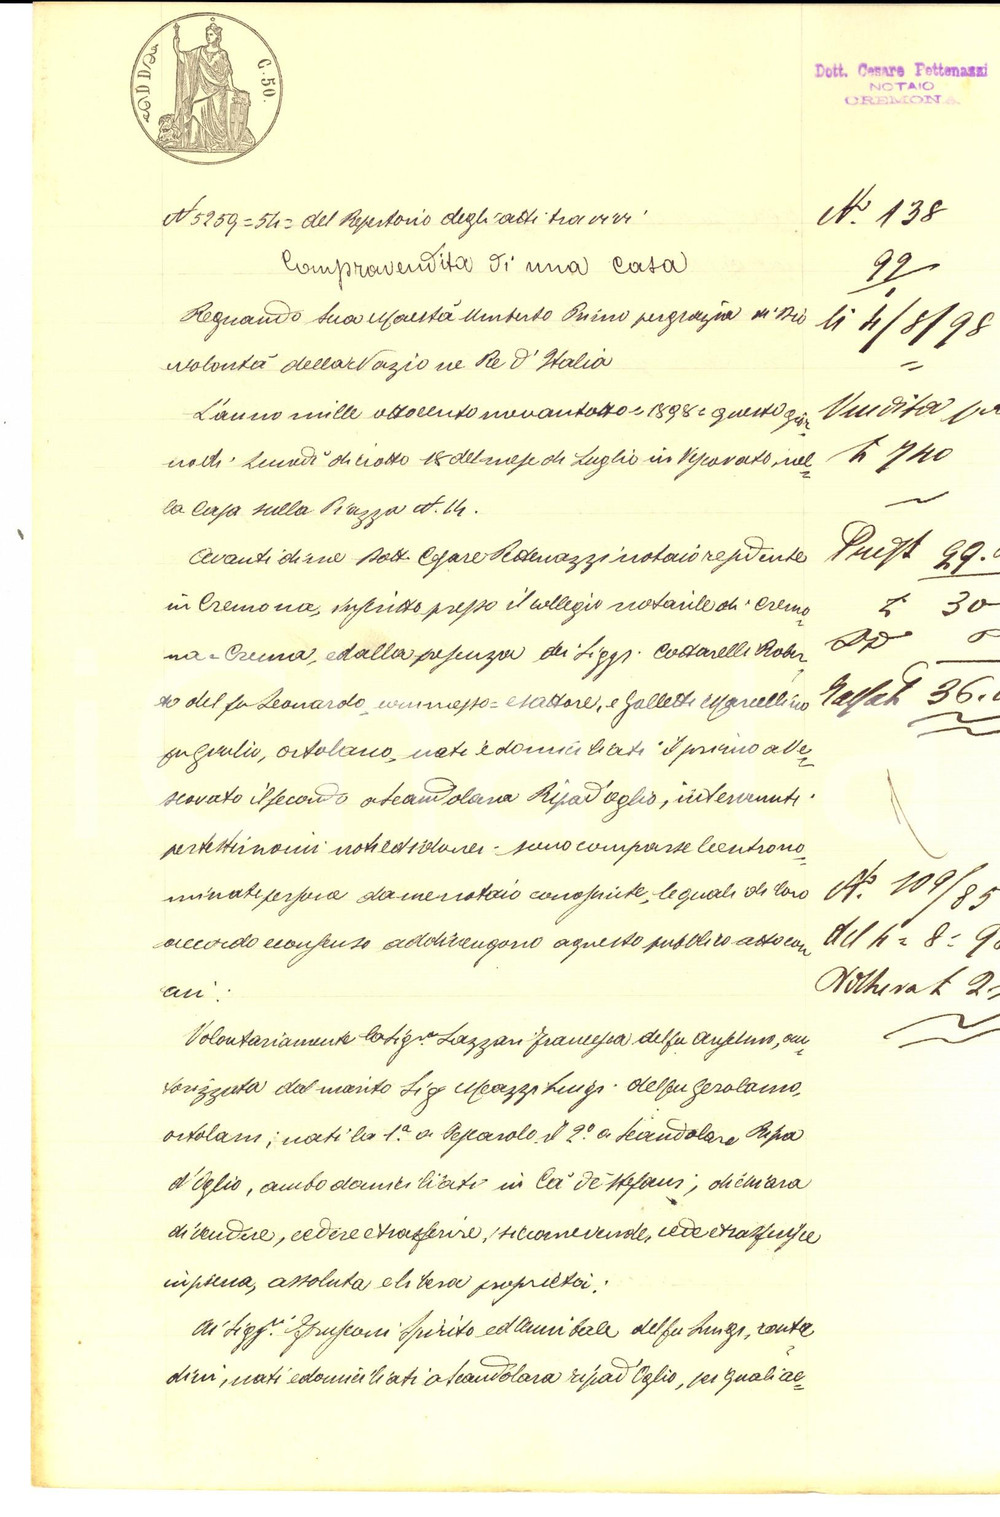 C. 50.
Dott. Cesare Pettenazzi
NOTAIO
CREMONA
N° 5259 = 54 = del Repertorio degli atti tra vivi
Compravendita di una casa
Regnando Sua Maestà Umberto Primo per grazia di Dio
volontà della Nazione Re d'Italia
L'anno mille ottocento novantotto = 1898 = questo gior=
no di Lunedì diciotto 18 del mese di Luglio in Vescovato, nel=
la Casa sulla Piazza N. 14.
Avanti di me Dott. Cesare Pettenazzi notaio residente
in Cremona, inscritto presso il collegio notarile di Cremo=
na = Crema, ed alla presenza dei Sigg.i Cottarelli Rober=
to del fu Leonardo, commesso = esattore, e Galletti Marcellino
fu Giulio, ortolano, nati e domiciliati il primo a Ve=
scovato il secondo a Scandolara Ripa d'Oglio, intervenuti
per testimoni noti ed idonei = sono comparse le entro no=
minate persone da me notaio conosciute, le quali di loro
accordo e consenso addivengono a questo pubblico atto con
cui:
Volontariamente la Sig.ra Lazzari Francesca del fu Anselmo, au=
torizzata dal marito Sig. Mazzi Luigi del fu Gerolamo,
ortolani; nati la 1.a a Persarolo il 2.o a Scandolara Ripa
d'Oglio, ambo domiciliati in Cà de' Stefani, dichiara
di vendere, cedere e trasferire, siccome vende, cede e trasferisce
in piena, assoluta e libera proprietà:
Ai Sigg.ri Frusconi Spirito ed Annibale del fu Luigi, conta=
dini, nati e domiciliati a Scandolara ripa d'Oglio, pei quali ac=
N.° 138
99
li 4/8/98
=
Vendita
£ 740
99.
£ 30
36.
N.° 109/85
del 4 = 8 = 98
£ 2